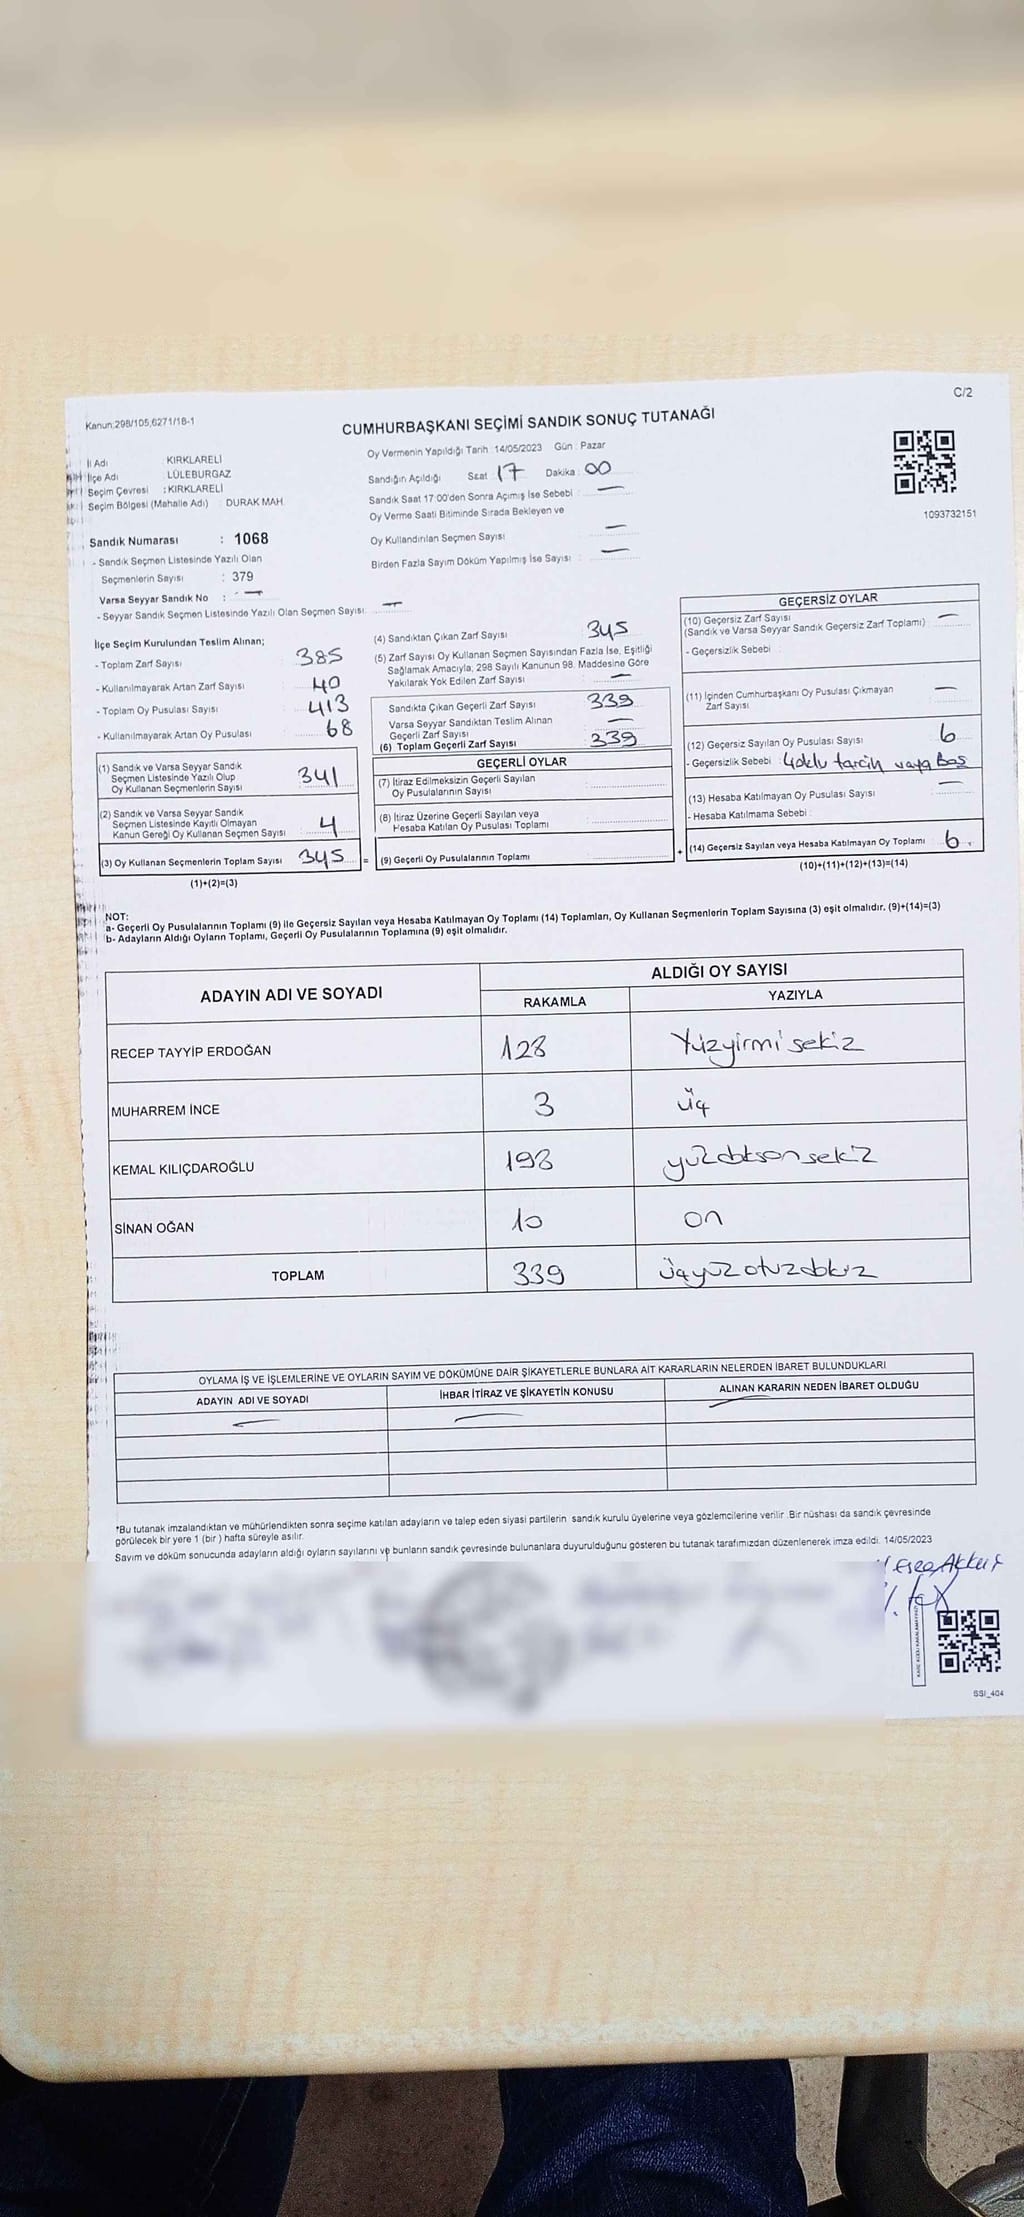 C/2
Kanun:298/105,6271/18-1
CUMHURBAŞKANI SEÇİMİ SANDIK SONUÇ TUTANAĞI
İl Adı : KIRKLARELİ
İlçe Adı : LÜLEBURGAZ
Seçim Çevresi : KIRKLARELİ
Seçim Bölgesi (Mahalle Adı) : DURAK MAH.
Sandık Numarası : 1068
- Sandık Seçmen Listesinde Yazılı Olan
Seçmenlerin Sayısı : 379
Varsa Seyyar Sandık No : —
- Seyyar Sandık Seçmen Listesinde Yazılı Olan Seçmen Sayısı: —
Oy Vermenin Yapıldığı Tarih :14/05/2023 Gün : Pazar
Sandığın Açıldığı Saat 17 Dakika : 00
Sandık Saat 17:00'den Sonra Açımış İse Sebebi : —
Oy Verme Saati Bitiminde Sırada Bekleyen ve
Oy Kullandırılan Seçmen Sayısı : —
Birden Fazla Sayım Döküm Yapılmış İse Sayısı : —
1093732151
İlçe Seçim Kurulundan Teslim Alınan;
- Toplam Zarf Sayısı 385
- Kullanılmayarak Artan Zarf Sayısı 40
- Toplam Oy Pusulası Sayısı 413
- Kullanılmayarak Artan Oy Pusulası 68
(1) Sandık ve Varsa Seyyar Sandık
Seçmen Listesinde Yazılı Olup
Oy Kullanan Seçmenlerin Sayısı 341
(2) Sandık ve Varsa Seyyar Sandık
Seçmen Listesinde Kayıtlı Olmayan
Kanun Gereği Oy Kullanan Seçmen Sayısı 4
(3) Oy Kullanan Seçmenlerin Toplam Sayısı 345 =
(1)+(2)=(3)
(4) Sandıktan Çıkan Zarf Sayısı : 345
(5) Zarf Sayısı Oy Kullanan Seçmen Sayısından Fazla İse, Eşitliği
Sağlamak Amacıyla; 298 Sayılı Kanunun 98. Maddesine Göre
Yakılarak Yok Edilen Zarf Sayısı : —
Sandıkta Çıkan Geçerli Zarf Sayısı : 339
Varsa Seyyar Sandıktan Teslim Alınan
Geçerli Zarf Sayısı : —
(6) Toplam Geçerli Zarf Sayısı : 339
GEÇERLİ OYLAR
(7) İtiraz Edilmeksizin Geçerli Sayılan
Oy Pusulalarının Sayısı :
(8) İtiraz Üzerine Geçerli Sayılan veya
Hesaba Katılan Oy Pusulası Toplamı :
(9) Geçerli Oy Pusulalarının Toplamı : +
GEÇERSİZ OYLAR
(10) Geçersiz Zarf Sayısı : —
(Sandık ve Varsa Seyyar Sandık Geçersiz Zarf Toplamı)
- Geçersizlik Sebebi :
(11) İçinden Cumhurbaşkanı Oy Pusulası Çıkmayan
Zarf Sayısı : —
(12) Geçersiz Sayılan Oy Pusulası Sayısı : 6
- Geçersizlik Sebebi : Çoklu tarcih veya Boş
(13) Hesaba Katılmayan Oy Pusulası Sayısı : —
- Hesaba Katılmama Sebebi :
(14) Geçersiz Sayılan veya Hesaba Katılmayan Oy Toplamı : 6.
(10)+(11)+(12)+(13)=(14)
NOT:
a- Geçerli Oy Pusulalarının Toplamı (9) ile Geçersiz Sayılan veya Hesaba Katılmayan Oy Toplamı (14) Toplamları, Oy Kullanan Seçmenlerin Toplam Sayısına (3) eşit olmalıdır. (9)+(14)=(3)
b- Adayların Aldığı Oyların Toplamı, Geçerli Oy Pusulalarının Toplamına (9) eşit olmalıdır.
ADAYIN ADI VE SOYADI ALDIĞI OY SAYISI
RAKAMLA YAZIYLA
RECEP TAYYİP ERDOĞAN 128 Yüzyirmi sekiz
MUHARREM İNCE 3 üç
KEMAL KILIÇDAROĞLU 198 yüzdoksonsekiz
SİNAN OĞAN 10 on
TOPLAM 339 üçyüzotuzdokuz
OYLAMA İŞ VE İŞLEMLERİNE VE OYLARIN SAYIM VE DÖKÜMÜNE DAİR ŞİKAYETLERLE BUNLARA AİT KARARLARIN NELERDEN İBARET BULUNDUKLARI
ADAYIN ADI VE SOYADI İHBAR İTİRAZ VE ŞİKAYETİN KONUSU ALINAN KARARIN NEDEN İBARET OLDUĞU
— — —
*Bu tutanak imzalandıktan ve mühürlendikten sonra seçime katılan adayların ve talep eden siyasi partilerin sandık kurulu üyelerine veya gözlemcilerine verilir. Bir nüshası da sandık çevresinde
görülecek bir yere 1 (bir) hafta süreyle asılır.
Sayım ve döküm sonucunda adayların aldığı oyların sayılarını ve bunların sandık çevresinde bulunanlara duyurulduğunu gösteren bu tutanak tarafımızdan düzenlenerek imza edildi. 14/05/2023
SSI_404